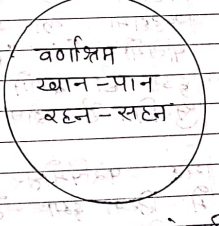 वर्णाश्रम
खान - पान
रहन - सहन